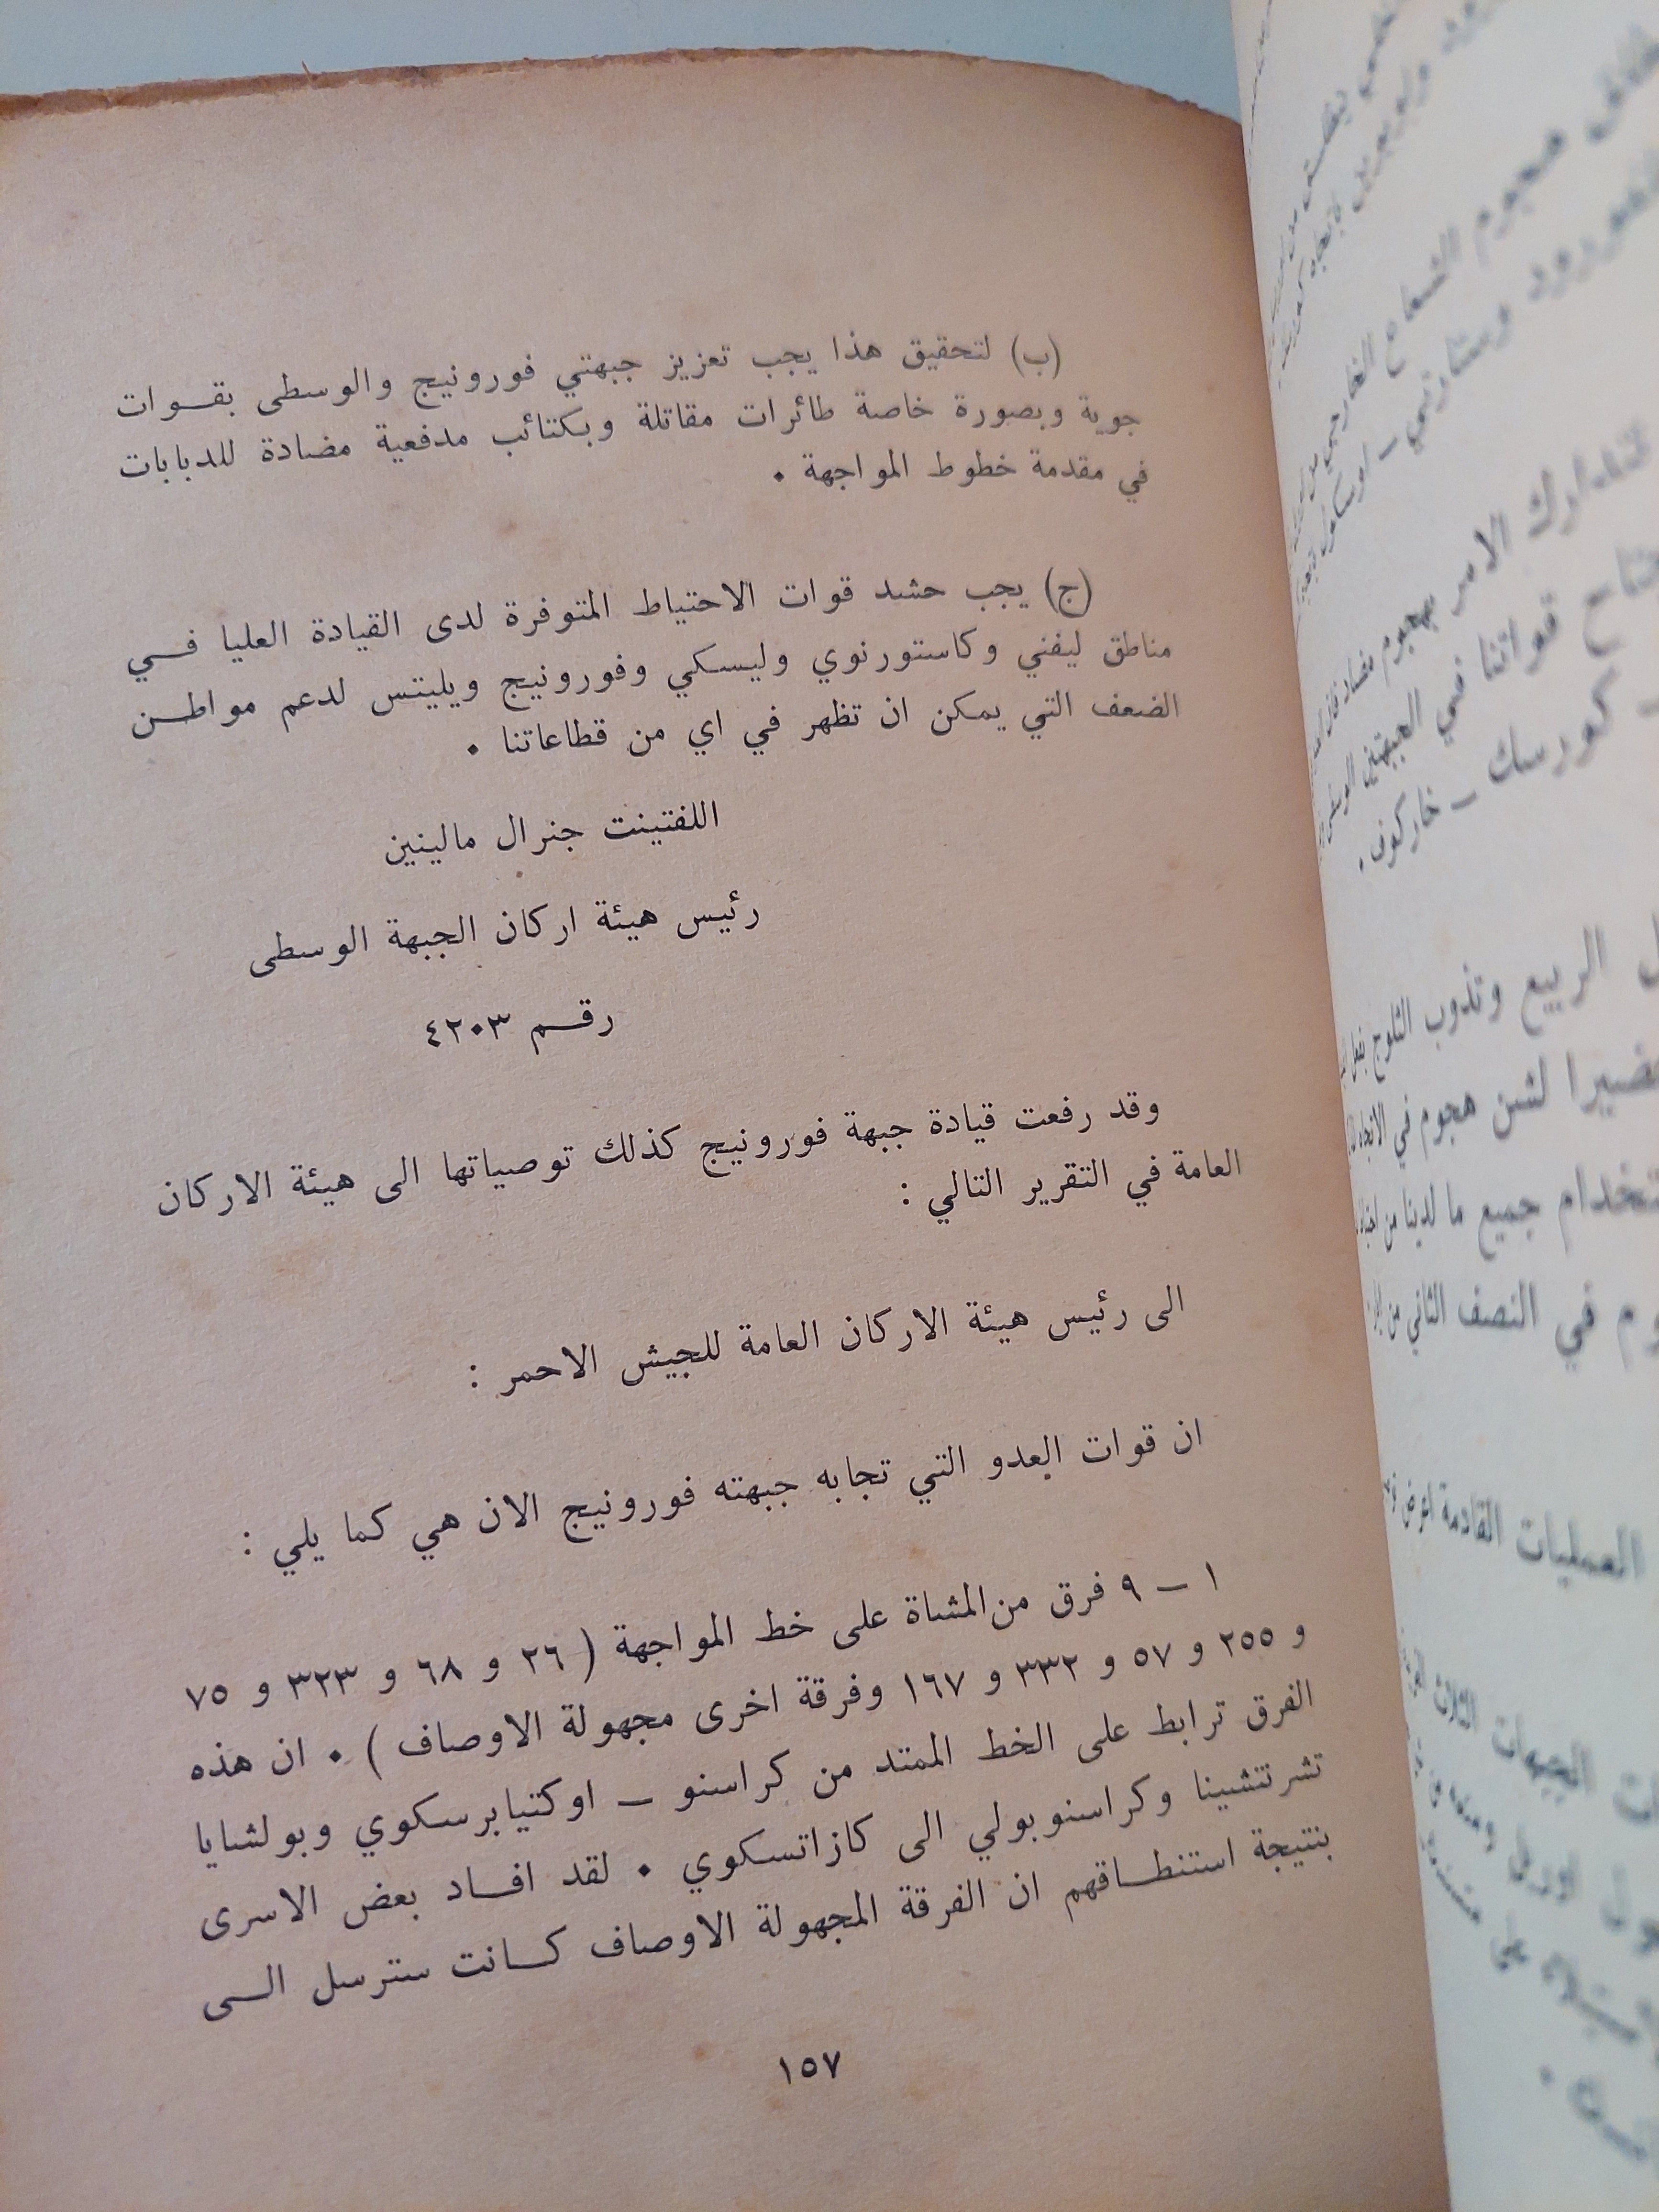 (ب) لتحقيق هذا يجب تعزيز جبهتي فورونيج والوسطى بقـوات
جوية وبصورة خاصة طائرات مقاتلة وبكتائب مدفعية مضادة للدبابات
في مقدمة خطوط المواجهة .
(ج) يجب حشد قوات الاحتياط المتوفرة لدى القيادة العليا فـي
مناطق ليفني وكاستورنوي وليسكي وفورونيج ويليتس لدعم مواطـن
الضعف التي يمكن ان تظهر في اي من قطاعاتنا .
اللفتيننت جنرال مالينين
رئيس هيئة اركان الجبهة الوسطى
رقـم ٤٢٠٣
وقد رفعت قيادة جبهة فورونيج كذلك توصياتها الى هيئة الاركان
العامة في التقرير التالي :
الى رئيس هيئة الاركان العامة للجيش الاحمر :
ان قوات العدو التي تجابه جبهته فورونيج الان هي كما يلي :
١ ـ ٩ فرق من المشاة على خط المواجهة ( ٢٦ و ٦٨ و ٣٢٣ و ٧٥
و ٢٥٥ و ٥٧ و ٣٣٢ و ١٦٧ وفرقة اخرى مجهولة الاوصاف ) . ان هذه
الفرق ترابط على الخط الممتد من كراسنو ـ اوكتيابرسكوي وبولشايا
تشرتتشينا وكراسنوبولي الى كازاتسكوي . لقد افـاد بعض الاسرى
بنتيجة استنطـاقهم ان الفرقة المجهولة الاوصاف كـانت سترسل الـى
١٥٧
هجوم الشعاع الخارجي من
لتدارك الامر بهجوم مضاد
قواتنا في الجبهتين
ـ كورسك ـ خاركوف .
الربيع وتذوب الثلوج بفعل
لشن هجوم في
جميع ما لدينا من
في النصف الثاني من
العمليات القادمة